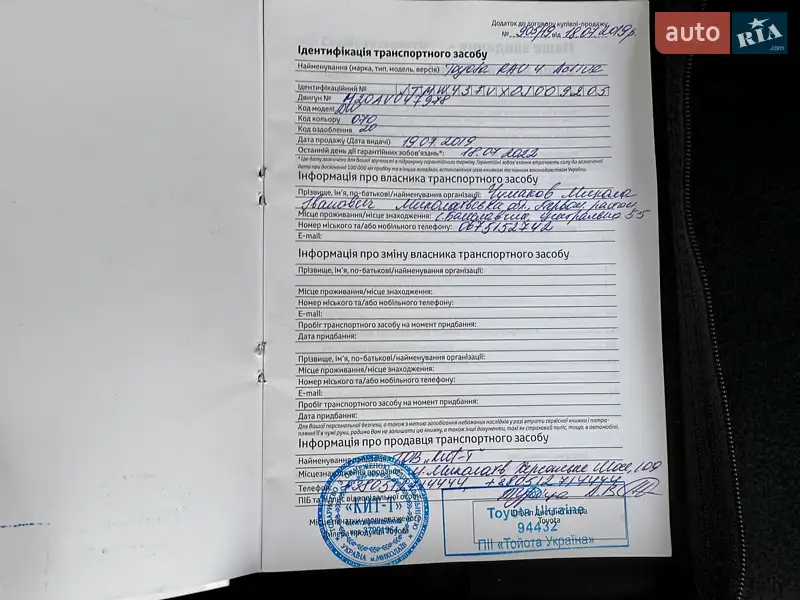 Додаток до договору купівлі-продажу
№ 905/19 від 18.07.2019р.
auto RIA .com
Ідентифікація транспортного засобу
Найменування (марка, тип, модель, версія) Toyota RAV 4 Active
Ідентифікаційний №
Двигун № M20AV047978
Код моделі
Код кольору 070
Код оздоблення 20
Дата продажу (Дата видачі) 19.07.2019
Останній день дії гарантійних зобов'язань*: 18.07.2022
* Цю дату зазначено для Вашої зручності в підрахунку гарантійного терміну. Гарантійні зобов'язання втрачають силу до зазначеної
дати при досягненні 100 000 км пробігу та в інших випадках, встановлених цією книжкою та чинним законодавством України.
Інформація про власника транспортного засобу
Прізвище, ім'я, по-батькові/найменування організації: Чумаков Микола
Іванович Миколаївська обл.
Місце проживання/місце знаходження: 55
Номер міського та/або мобільного телефону: 0675152742
E-mail:
Інформація про зміну власника транспортного засобу
Прізвище, ім'я, по-батькові/найменування організації:
Місце проживання/місце знаходження:
Номер міського та/або мобільного телефону:
E-mail:
Пробіг транспортного засобу на момент придбання:
Дата придбання:
Прізвище, ім'я, по-батькові/найменування організації:
Місце проживання/місце знаходження:
Номер міського та/або мобільного телефону:
E-mail:
Пробіг транспортного засобу на момент придбання:
Дата придбання:
Для Вашої персональної безпеки, а також з метою запобігання небажаних наслідків у разі втрати сервісної книжки і потра-
пляння її в чужі руки, радимо Вам не залишати цю книжку, а також інші документи, такі як страховий поліс, тощо, в автомобілі.
Інформація про продавця транспортного засобу
Найменування ТОВ "КИТ-Т"
Місцезнаходження м. Миколаїв Херсонське Шосе,
Телефон +380512714444
ПІБ та підпис відповідальної особи
«КИТ-Т»
Місце печатки уповноваженого
Toyota
УКРАЇНА м.МИКОЛАЇВ
Toyota Ukraine
Toyota
94432
ПІІ «Тойота Україна»